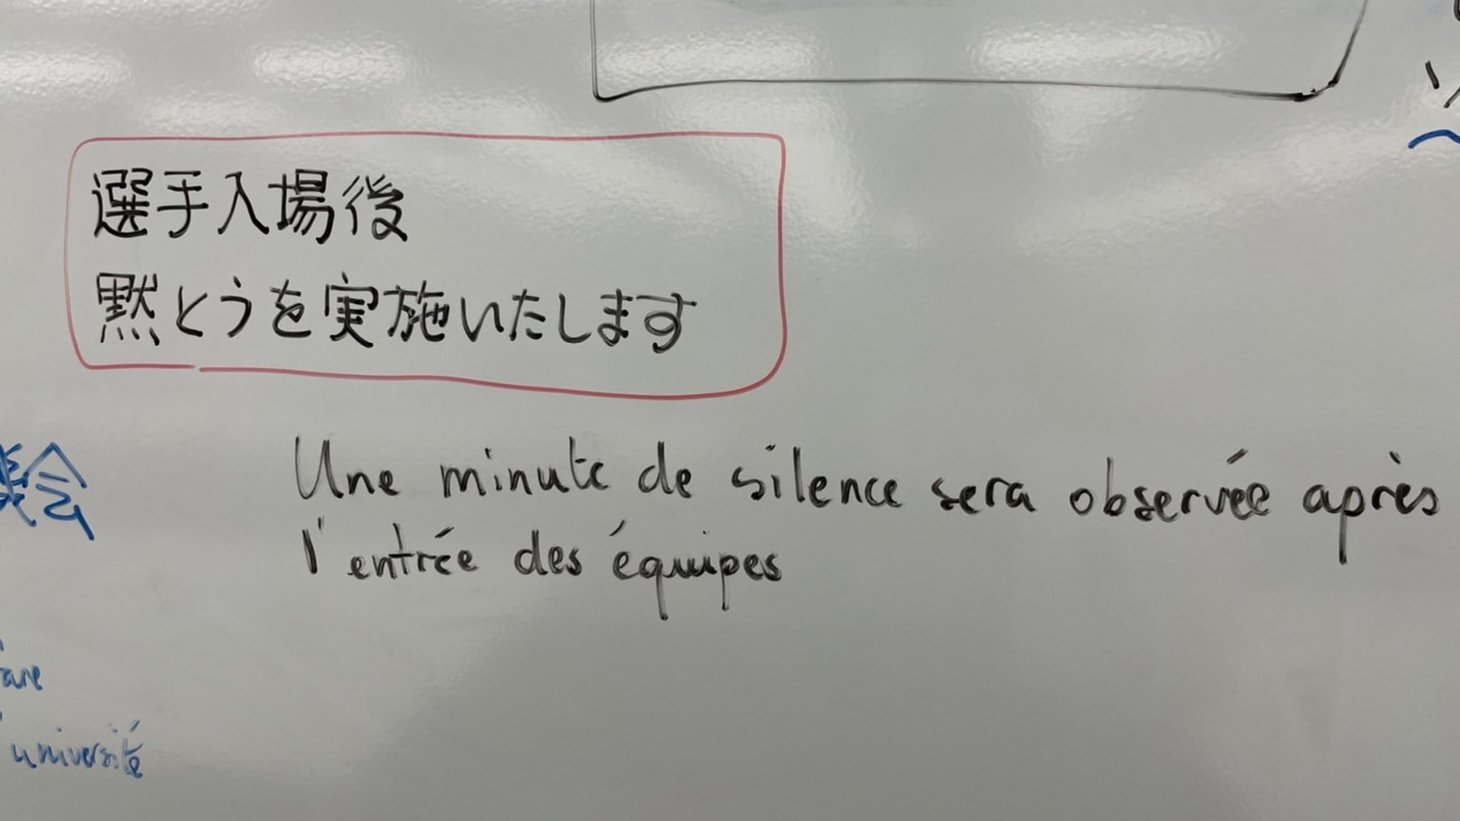 選手入場後
黙とうを実施いたします
会
Une minute de silence sera observée après
l'entrée des équipes
université